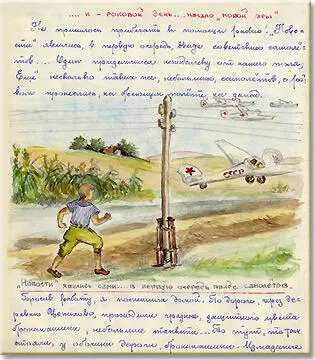 .... и - роковой день.... начало „новой эры"
Не пришлось прибегать в помощи радио. „Ново-
сти" явились, в первую очередь ввиде советских самоле-
тов.... Один приземлился неподалеку от нашего
Ещё несколько таких же, небольших, самолетов, с
вом пронеслись, на бреющем полёте на запад.
СССР
„Новости" явились сами.... в первую очередь ввиде самолетов.
Бросив работу, я помчался домой. По дороге, через де-
ревню проходили грязные, защитного цвета
броневашины, небольшие танкет.... То тут, то там
стояли, у обочины дороги, бронемашины. Младшие